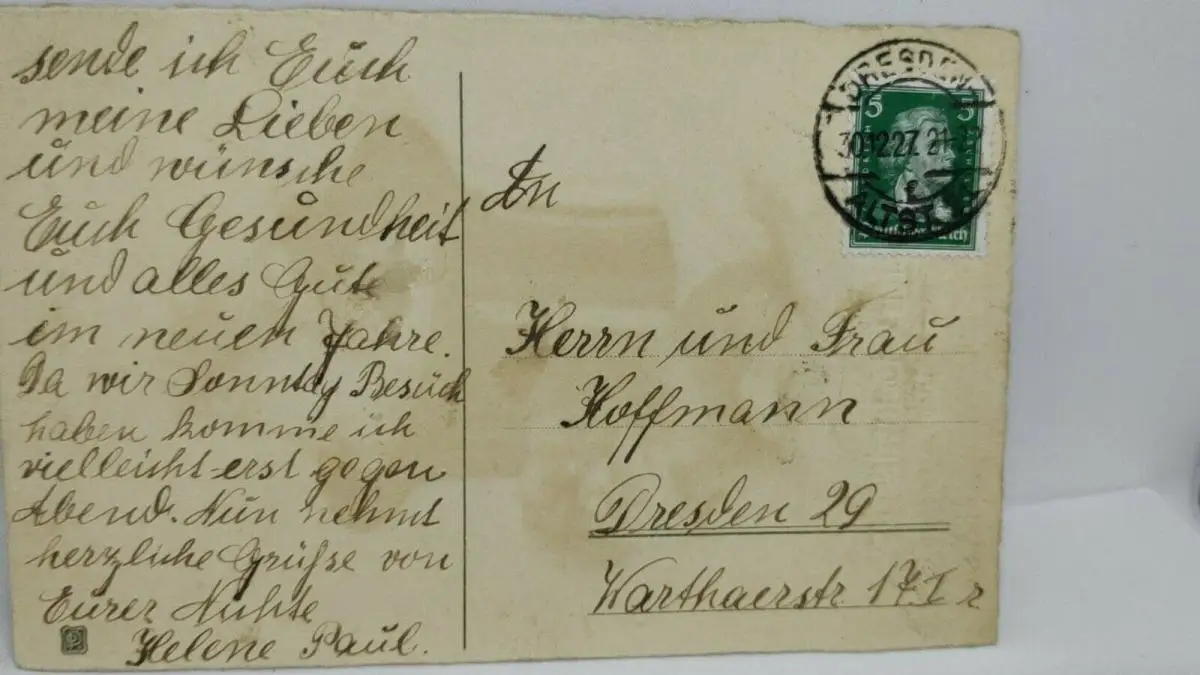 sende ich Euch
meine Lieben
und wünsche
Euch Gesundheit
und alles Gute
im neuen Jahre.
Da wir Sonntag Besuch
haben komme ich
vielleicht erst gegen
Abend. Nun nehmt
herzliche Grüße von
Eurer
Helene Paul.
DRESDEN
ALTST.
30.12.27. 21-22
5 5
An
Herrn und Frau
Hoffmann
Dresden 29
Warthaerstr 17 I r